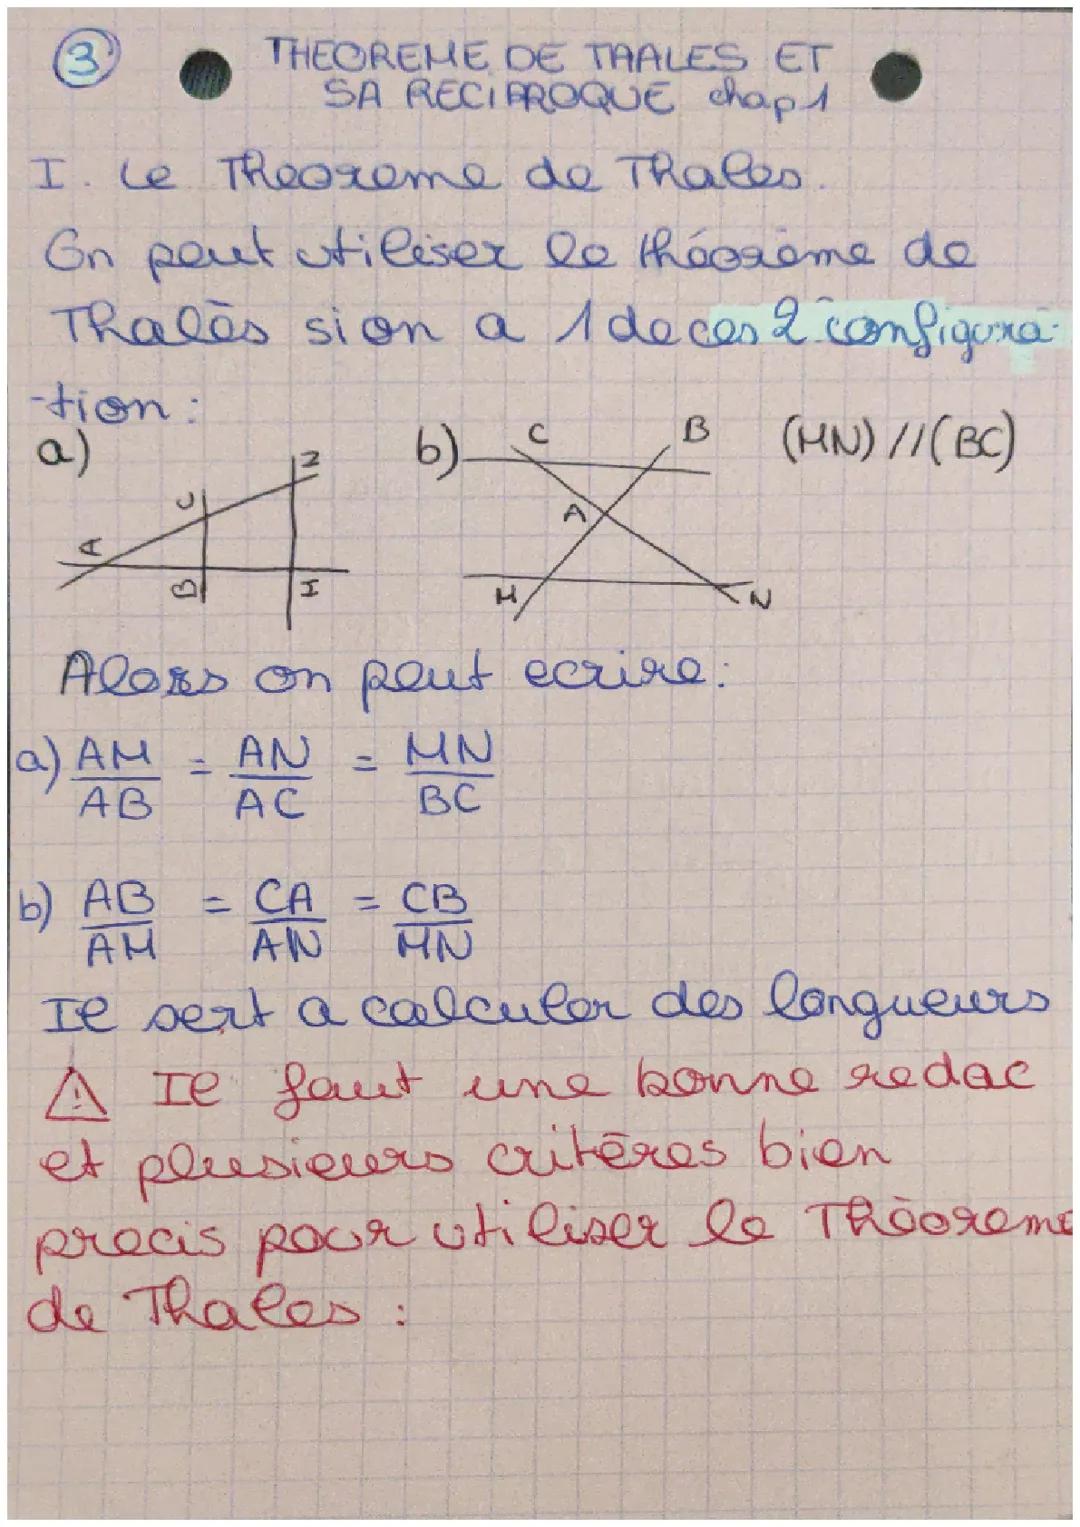 3
THEOREME DE THALES ET
SA RECIPROQUE chap 1
I. Le Theoreme de Thales.
On peut utiliser le théorème de
Thalès si on a 1 de ces 2 configura-
-tion :
a)
b)
C
B
(MN) // (BC)
N
C
A
A
B
M
M
N
Alors on peut ecrire :
a) AM/AB = AN/AC = MN/BC
b) AB/AM = CA/AN = CB/MN
Il sert a calculer des longueurs
⚠ Il faut une bonne redac
et plusieurs critères bien
precis pour utiliser le Thèoreme
de Thales :